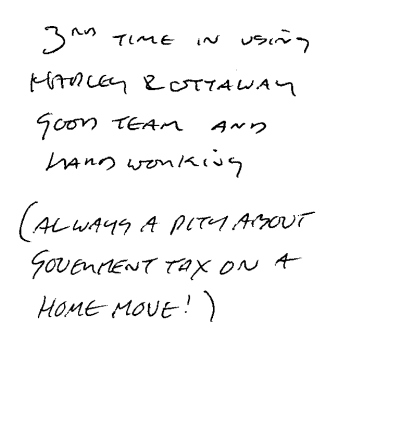 3RD TIME IN USING
HADLEY & OTTAWAY
GOOD TEAM AND
HARD WORKING
(ALWAYS A PITY ABOUT
GOVERMENT TAX ON A
HOME MOVE!)